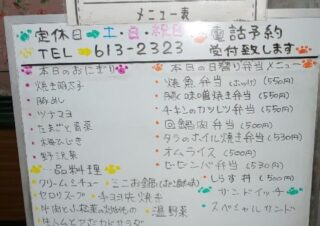 メニュー表
定休日→土・日・祝日 電話予約
TEL→613-2323 受付致します
本日のおにぎり
・焼き明太子
・豚めし
・ツナマヨ
・たまごと高菜
・野沢菜
一品料理
・クリームシチュー ・ミニお鍋
・セロリスープ ・チヨコ矢焼き
・牛肉と小松菜の炒めもの ・温野菜
本日の日替り弁当メニュー
・焼魚弁当(ホッケ)(550円)
・豚と味噌焼き弁当(550円)
・チキンのカツレツ弁当(550円)
・回鍋肉弁当(500円)
・タラのホイル焼き弁当(530円)
・オムライス(500円)
・ビビンバ弁当(530円)
・しらす丼(500円)
サンドイッチ
・スペシャルサンド